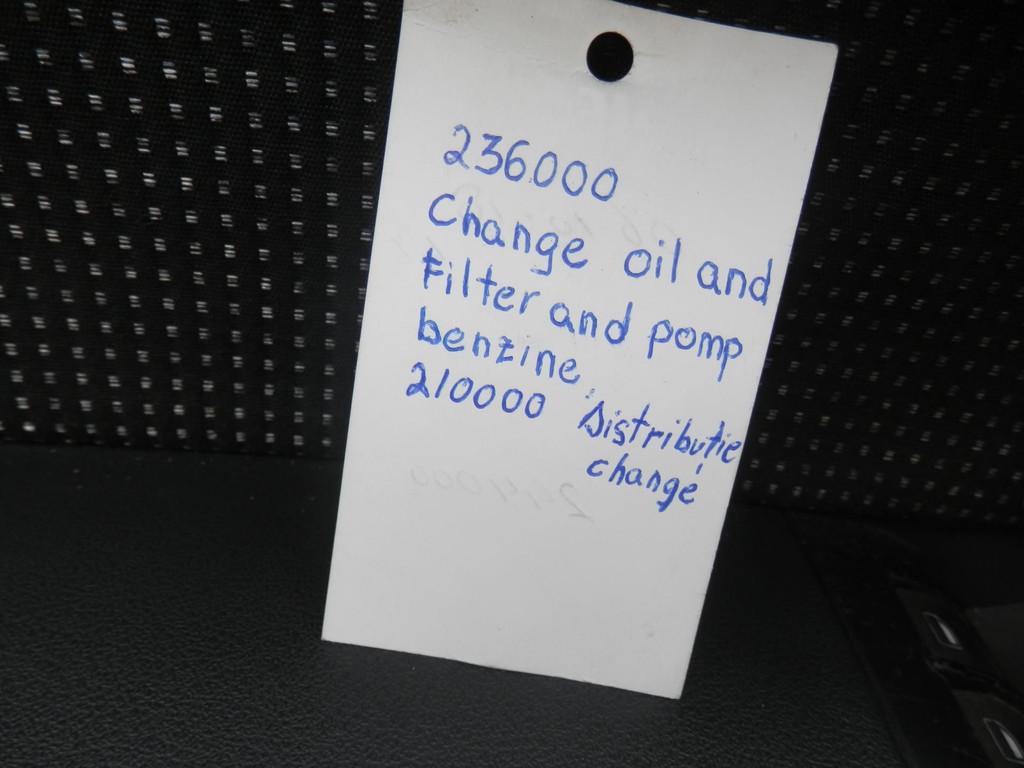 236000
Change oil and
Filter and pomp
benzine.
210000 Distributie
change